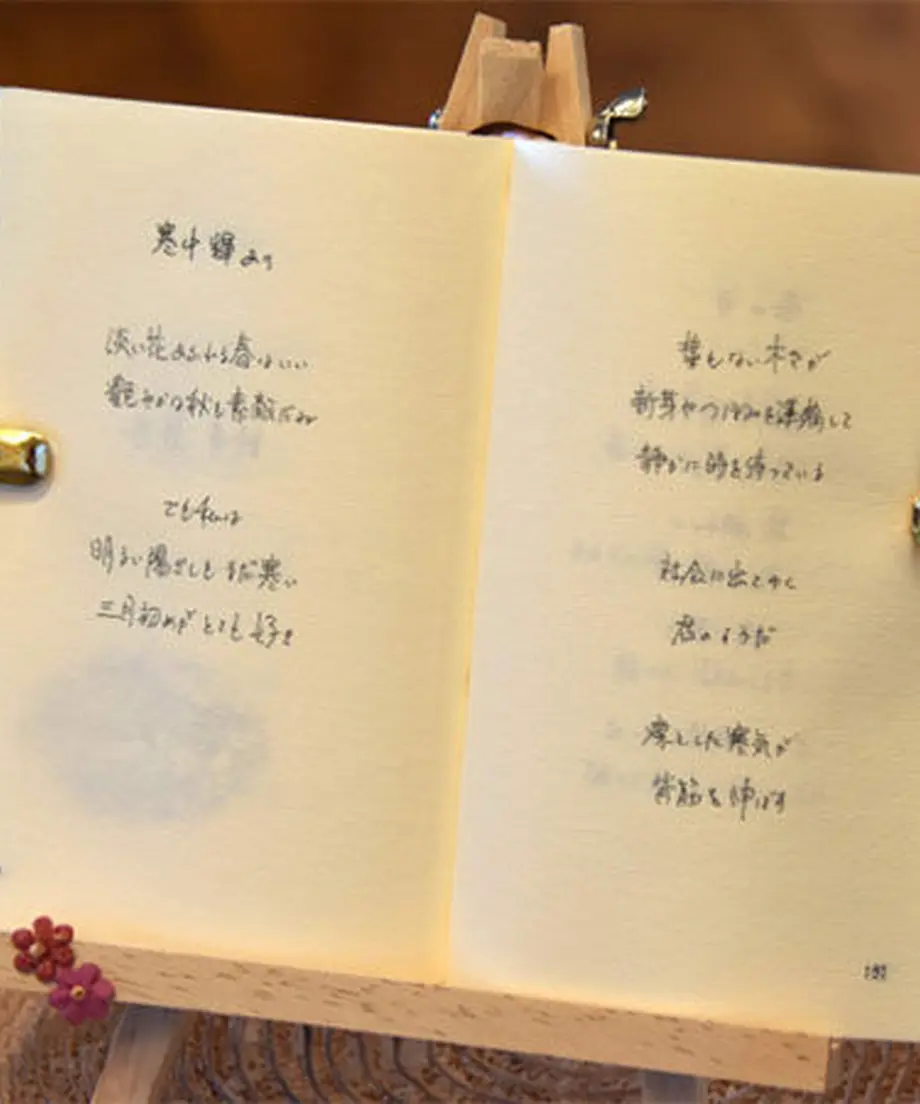 寒中輝あり
淡い花あふれる春はいい
艶やかな秋も素敵だね
でも私は
明るい陽ざしも まだ寒い
三月初めが とても 好き
葉もない木々が
新芽やつぼみを準備して
静かに時を待っている
社会に出てゆく
君のようだ
凛とした寒気が
背筋を伸ばす